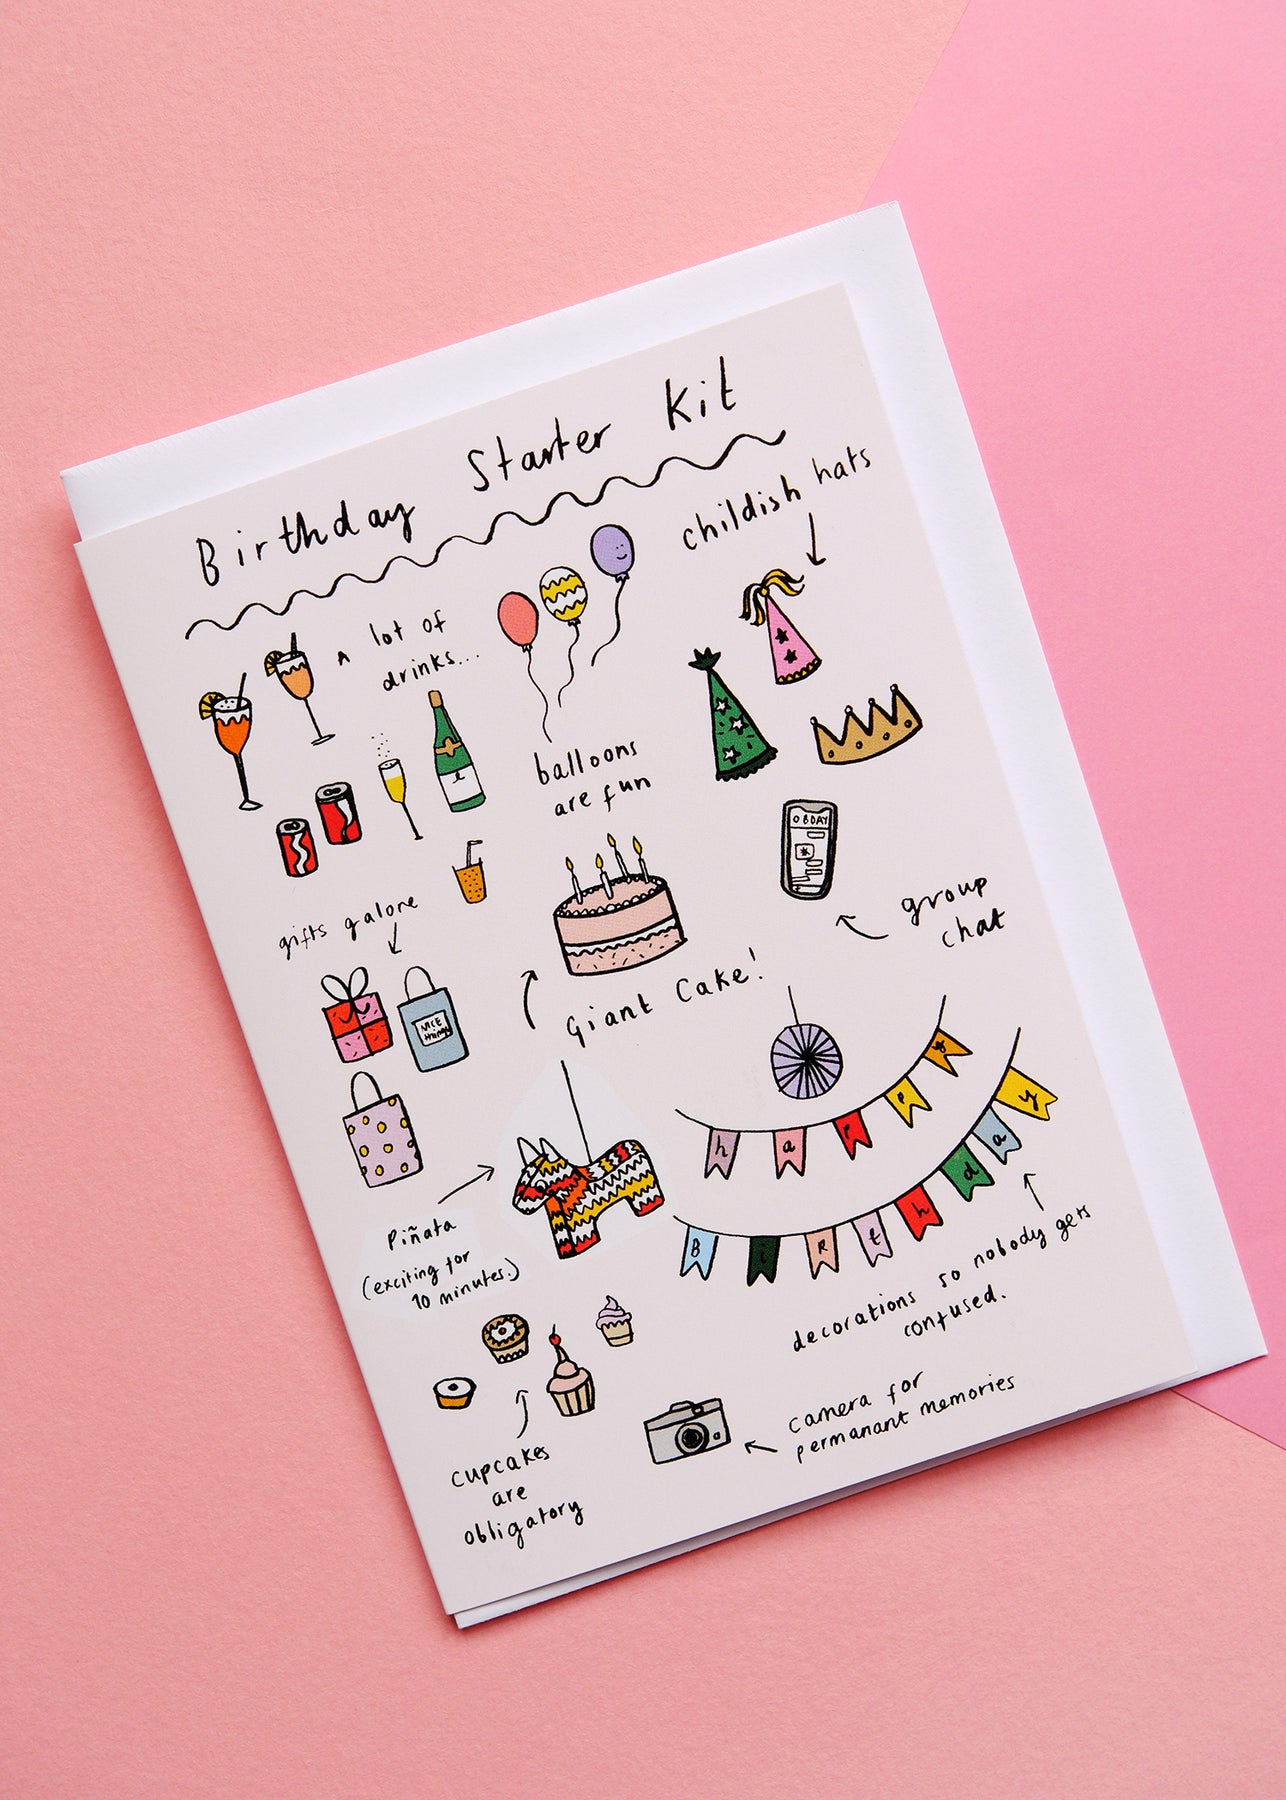 Birthday Starter Kit
A lot of
drinks...
balloons
are fun
childish hats
O BDAY
group
chat
gifts galore
NICE
things
Giant Cake!
Piñata
(exciting for
10 minutes.)
happy
BiRthday
decorations so nobody gets
confused.
cupcakes
are
obligatory
camera for
permanant memories